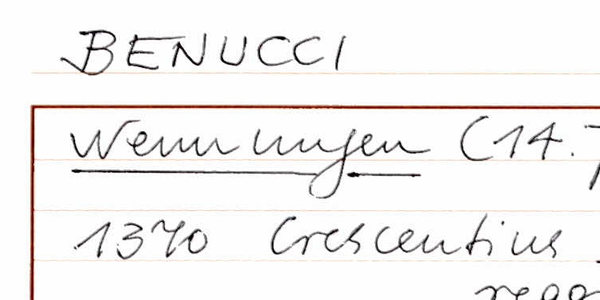 BENUCCI
Nennungen (14.
1370 Crescentius